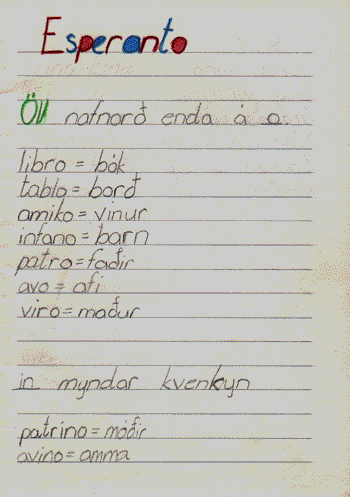 Esperanto
Öll nafnorð enda á o.
libro = bók
tablo = borð
amiko = vinur
infano = barn
patro = faðir
avo = afi
viro = maður
in myndar kvenkyn
patrino = móðir
avino = amma